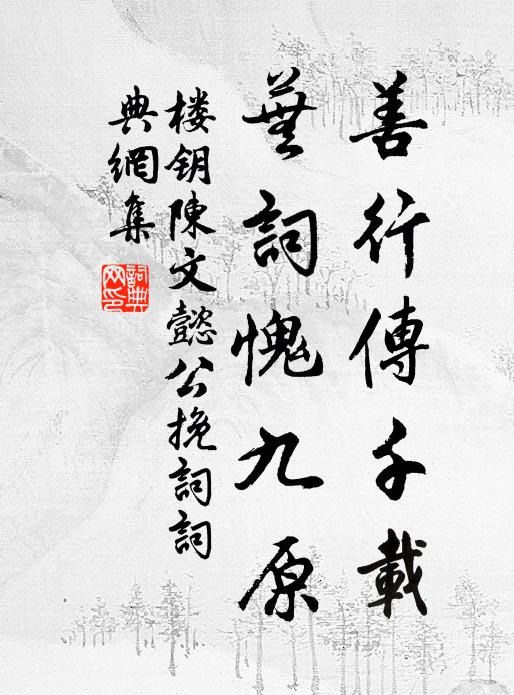 善行傳千載
蕪詞愧九原
楼钥陳文懿公挽詞詞
典網集
詞典
网印